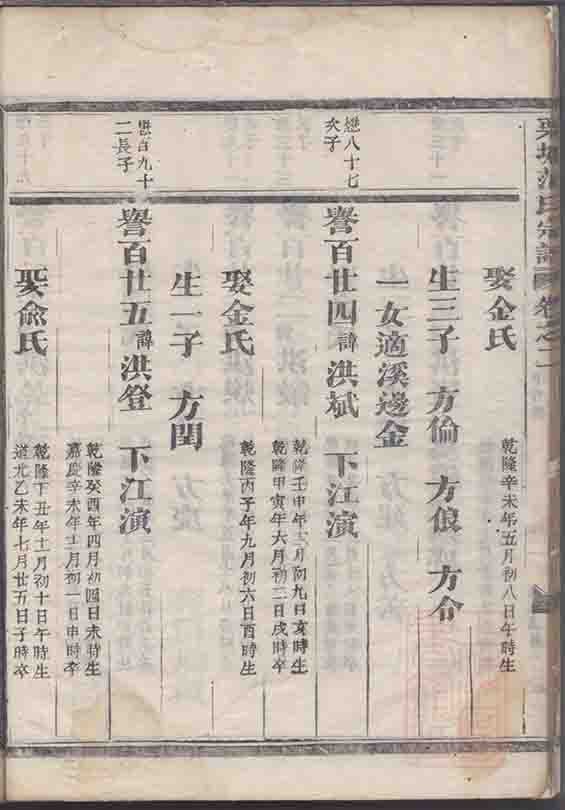 氏宗譜
卷之二
娶金氏
乾隆辛未年五月初八日午時生
生三子 方倫 方俍 方介
一女適溪邊金
懋八十七
次子
譽百廿四諱洪斌 下江演
乾隆壬申年三月初九日亥時生
乾隆甲寅年六月初二日戌時卒
娶金氏
乾隆丙子年九月初六日酉時生
生一子 方閏
懋百九十
二長子
譽百廿五諱洪登 下江演
乾隆癸酉年四月初四日未時生
嘉慶辛未年十二月初一日申時卒
娶俞氏
乾隆丁丑年十二月初十日午時生
道光乙未年七月廿五日子時卒